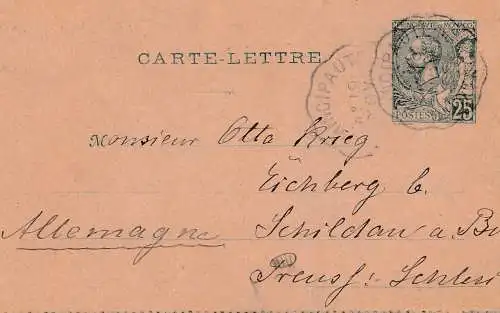 CARTE-LETTRE
POSTES 25
PRINCIPAUTÉ
Monsieur Otto Krieg
Eichberg b.
Allemagne Schildau a. Bo
Preuss: Schles